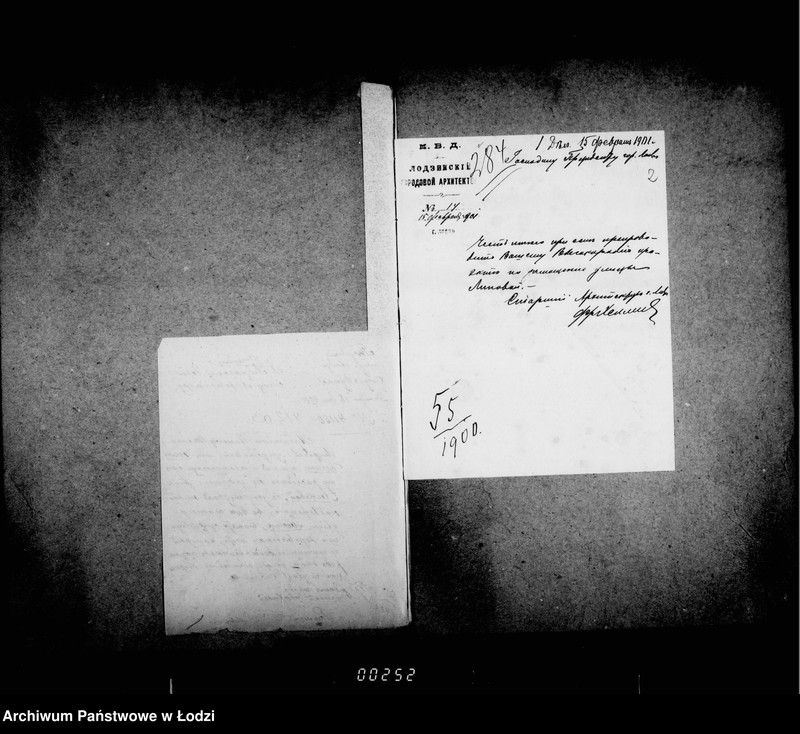 М. В. Д.
ЛОДЗИНСКІЙ
ГОРОДОВОЙ АРХИТЕКТ
№ 17
15 февраля 1901
Г. ЛОДЗЬ
284
15 февраля 1901 г.
Господину Президенту гор. Лодзи
2
Честь имею при семъ препрово-
дить Вашему Высокородію про-
ектъ по замощенію улицы
Липовой.—
Старшій Архитекторъ г. Лодзи
55
1900.
00252
Archiwum Państwowe w Łodzi